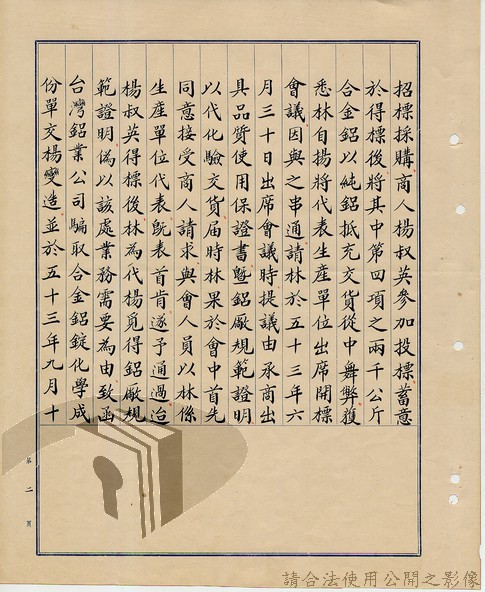 招標採購商人楊叔英參加投標蓄意
於得標後將其中第四項之兩千公斤
合金鋁以純鋁抵充交貨從中舞弊獲
悉林自揚將代表生產單位出席開標
會議因與之串通請林於五十三年六
月三十日出席會議時提議由承商出
具品質使用保證書暨鋁廠規範證明
以代化驗交貨屆時林果於會中首先
同意接受商人請求與會人員以林係
生產單位代表既表首肯遂予通過迨
楊叔英得標後林為代楊覓得鋁廠規
範證明偽以該處業務需要為由致函
台灣鋁業公司騙取合金鋁錠化學成
份單交楊變造並於五十三年九月十
第二頁
請合法使用公開之影像